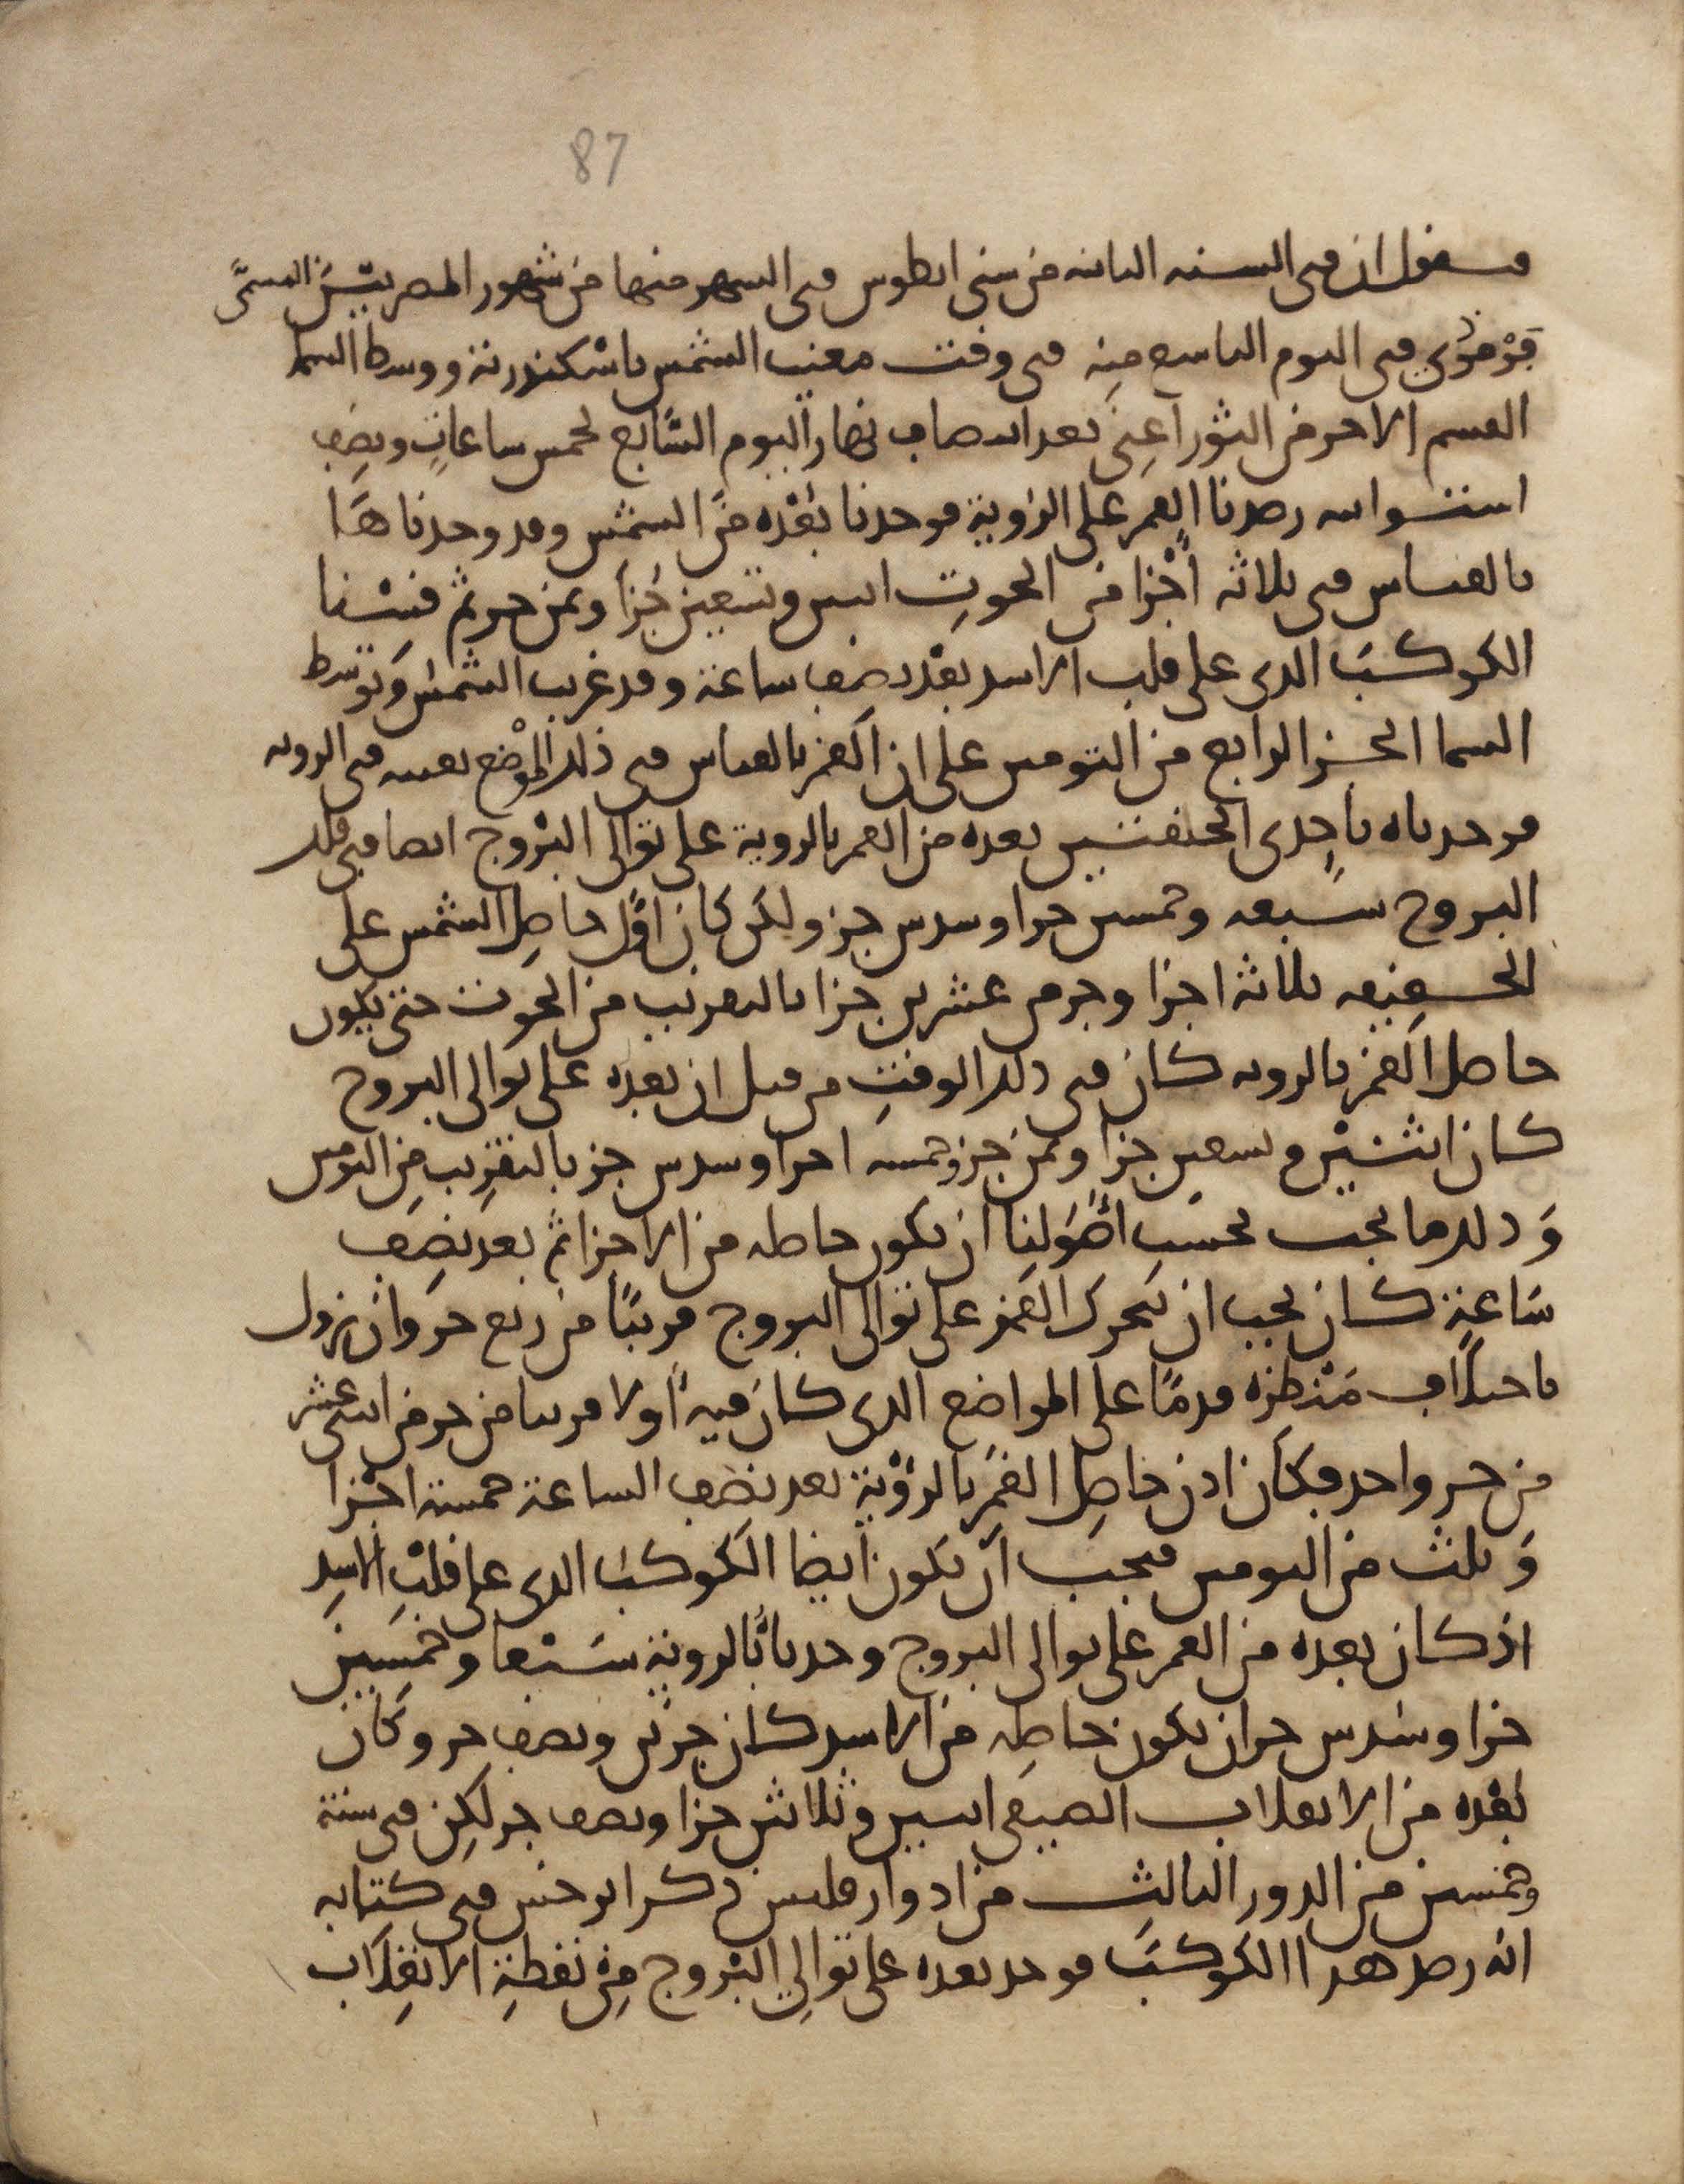 87
فنقول ان فى السنه الثانيه من سنى انطونس فى الشهر منها من شهور المصريين المسمى
فرموثى فى اليوم التاسع منه فى وقت مغيب الشمس باسكندرية ووسط السما
القسم الاخر من الثور اعنى بعد انتصاف نهار اليوم التاسع لخمس ساعات ونصف
استوائيه رصدنا القمر على الرؤية فوجدنا بعده من الشمس وقد وجدناها
بالقياس فى ثلاثة اجزا من الحوت اثنين وتسعين جزا وثمن جز ثم قسنا
الكوكب الذى على قلب الاسد بعد نصف ساعة وقد غرب الشمس وتوسط
السما الجز الرابع من التومين على ان القمر بالقياس فى ذلك الموضع بعينه فى الرويه
فوجدناه باحدى الحلقتين بعده من القمر بالروية على توالى البروج ايضا فى فلك
البروج سبعه وخمسين جزا وسدس جز ولكن كان اول حاصل الشمس على
الحقيقه ثلاثة اجزا وجز من عشرين جزا بالتقريب من الحوت حتى يكون
حاصل القمر بالرويه كان فى ذلك الوقت من قبل ان بعده على توالى البروج
كان اثنين وتسعين جزا وثمن جز وخمسه اجزا وسدس جز بالتقريب من التومين
وذلك ما يجب بحسب اصولنا ان يكون حاصله من الاجزا ثم بعد نصف
ساعة كان يجب ان يتحرك القمر على توالى البروج قريبا من ربع جز وان يزول
باختلاف منظره قدما على المواضع الذى كان فيه اولا قريبا من جز من اثنى عشر
من جز واحد فكان اذن حاصل القمر بالرؤية بعد نصف الساعة خمسة اجزا
وثلث من التومين فيجب ان يكون ايضا الكوكب الذى على قلب الاسد
اذ كان بعده من القمر على توالى البروج وجدناه بالروية سبعا وخمسين
جزا وسدس جز ان يكون حاصله من الاسد كان جزين ونصف جز وكان
بعده من الانقلاب الصيفى اثنين وثلاثين جزا ونصف جز لكن فى سنة
وخمسين من الدور الثالث من ادوار فلبس ذكر ابرخس فى كتابه
انه رصد هذا الكوكب فوجد بعده على توالى البروج من نقطة الانقلاب